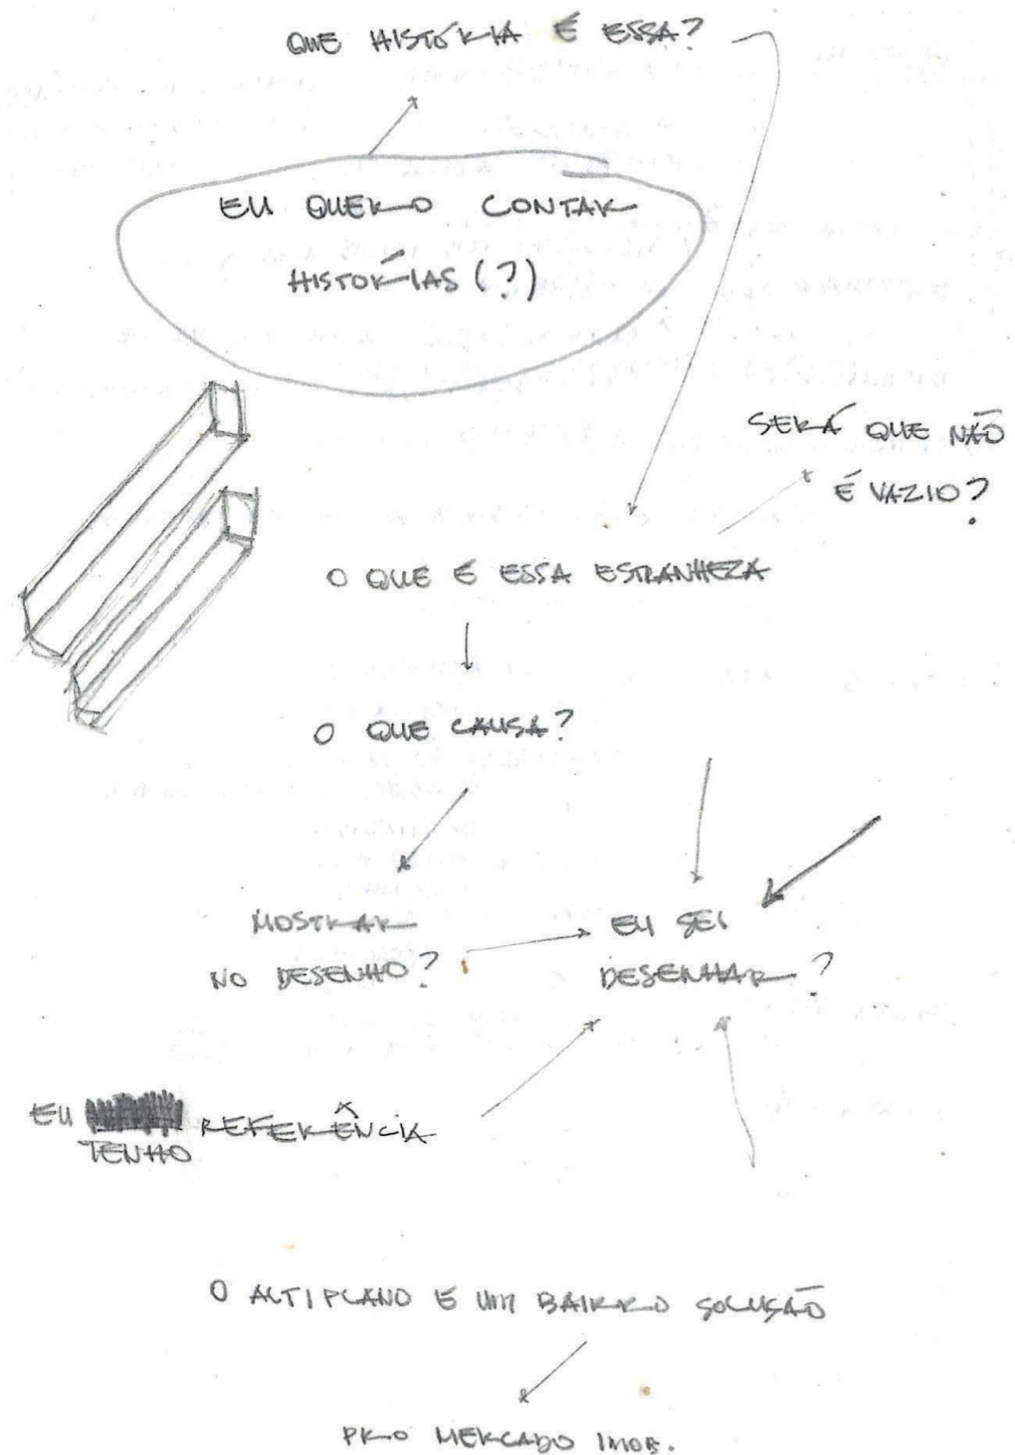 QUE HISTÓRIA É ESSA?
EU QUERO CONTAR
HISTÓRIAS (?)
SERÁ QUE NÃO
É VAZIO?
O QUE É ESSA ESTRANHEZA
O QUE CAUSA?
MOSTRAR
NO DESENHO?
EU SEI
DESENHAR?
EU REFERÊNCIA
TENHO
O ALTIPLANO É UM BAIRRO SOLUSÃO
PRO MERCADO IMOB.